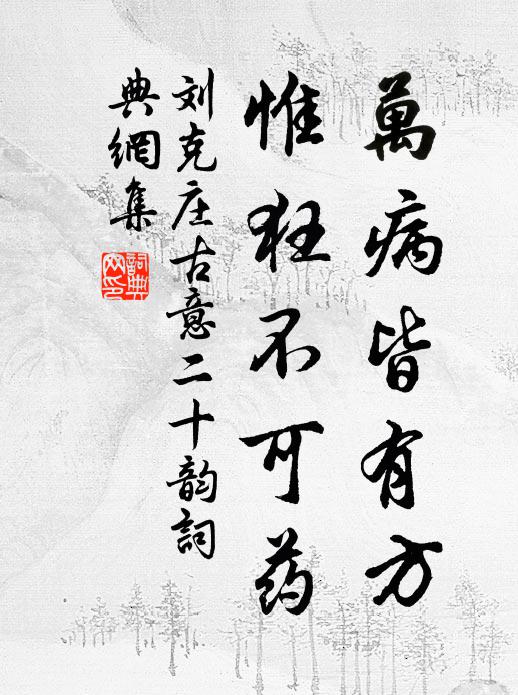 萬病皆有方
惟狂不可药
刘克庄古意二十韵詞
典網集
詞典
网印